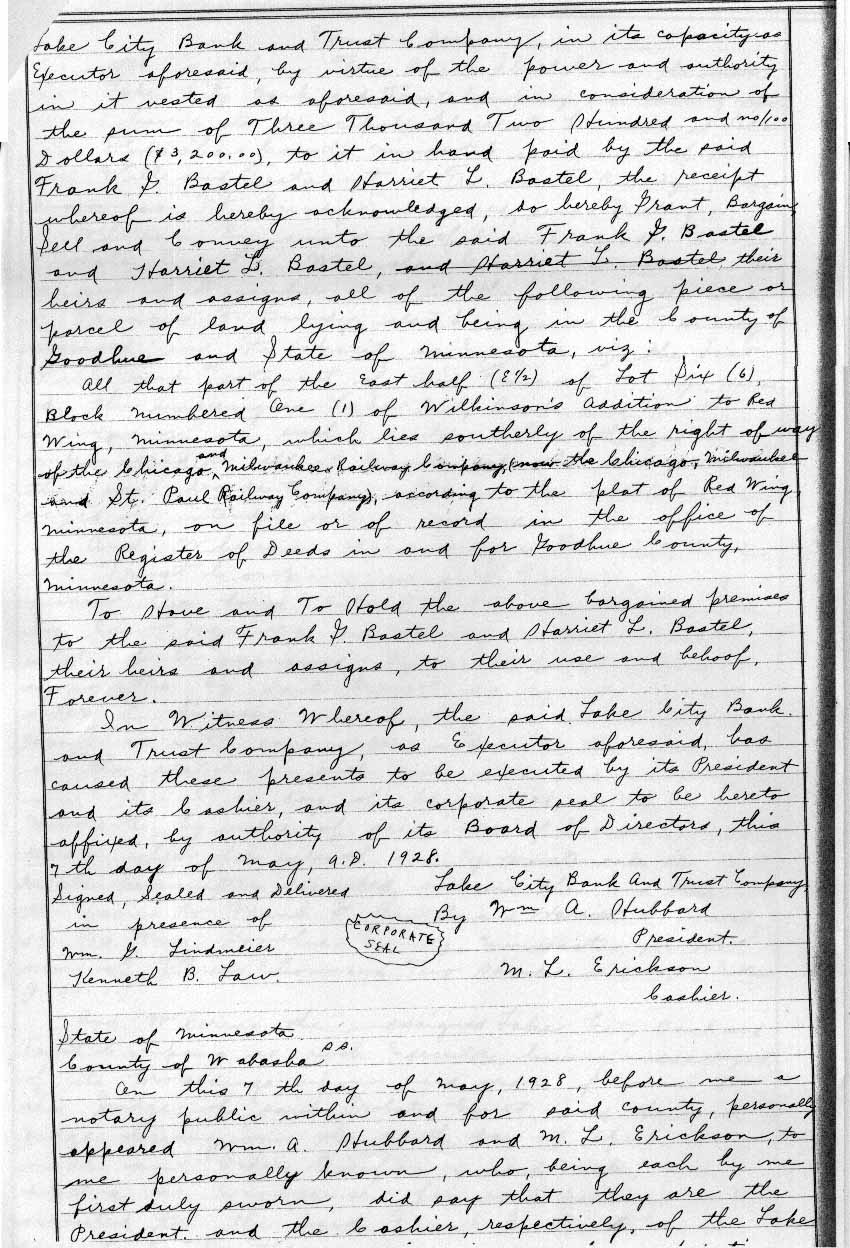 Lake City Bank and Trust Company, in its capacity as
Executor aforesaid, by virtue of the power and authority
in it vested as aforesaid, and in consideration of
the sum of Three Thousand Two Hundred and no/100
Dollars ($3,200.00), to it in hand paid by the said
Frank G. Bastel and Harriet L. Bastel, the receipt
whereof is hereby acknowledged, do hereby Grant, Bargain,
Sell and Convey unto the said Frank G. Bastel
and Harriet L. Bastel, and Harriet L. Bastel, their
heirs and assigns, all of the following piece or
parcel of land lying and being in the County of
Goodhue and State of Minnesota, viz:
All that part of the East half (E½) of Lot Six (6),
Block numbered One (1) of Wilkinson's Addition to Red
Wing, Minnesota, which lies southerly of the right of way
of the Chicago and Milwaukee Railway Company, (now the Chicago, Milwaukee
and St. Paul Railway Company), according to the plat of Red Wing,
Minnesota, on file or of record in the office of
the Register of Deeds in and for Goodhue County,
Minnesota.
To Have and To Hold the above bargained premises
to the said Frank G. Bastel and Harriet L. Bastel,
their heirs and assigns, to their use and behoof,
Forever.
In Witness Whereof, the said Lake City Bank
and Trust Company, as Executor aforesaid, has
caused these presents to be executed by its President
and its Cashier, and its corporate seal to be hereto
affixed, by authority of its Board of Directors, this
7th day of May, A.D. 1928.
Signed, Sealed and Delivered Lake City Bank And Trust Company
in presence of CORPORATE SEAL By Wm A. Hubbard
Wm. G. Lindmeier President.
Kenneth B. Law. M. L. Erickson
Cashier.
State of Minnesota
County of Wabasha ss.
On this 7th day of May, 1928, before me a
notary public within and for said county, personally
appeared Wm. A. Hubbard and M. L. Erickson, to
me personally known, who, being each by me
first duly sworn, did say that they are the
President. and the Cashier, respectively, of the Lake